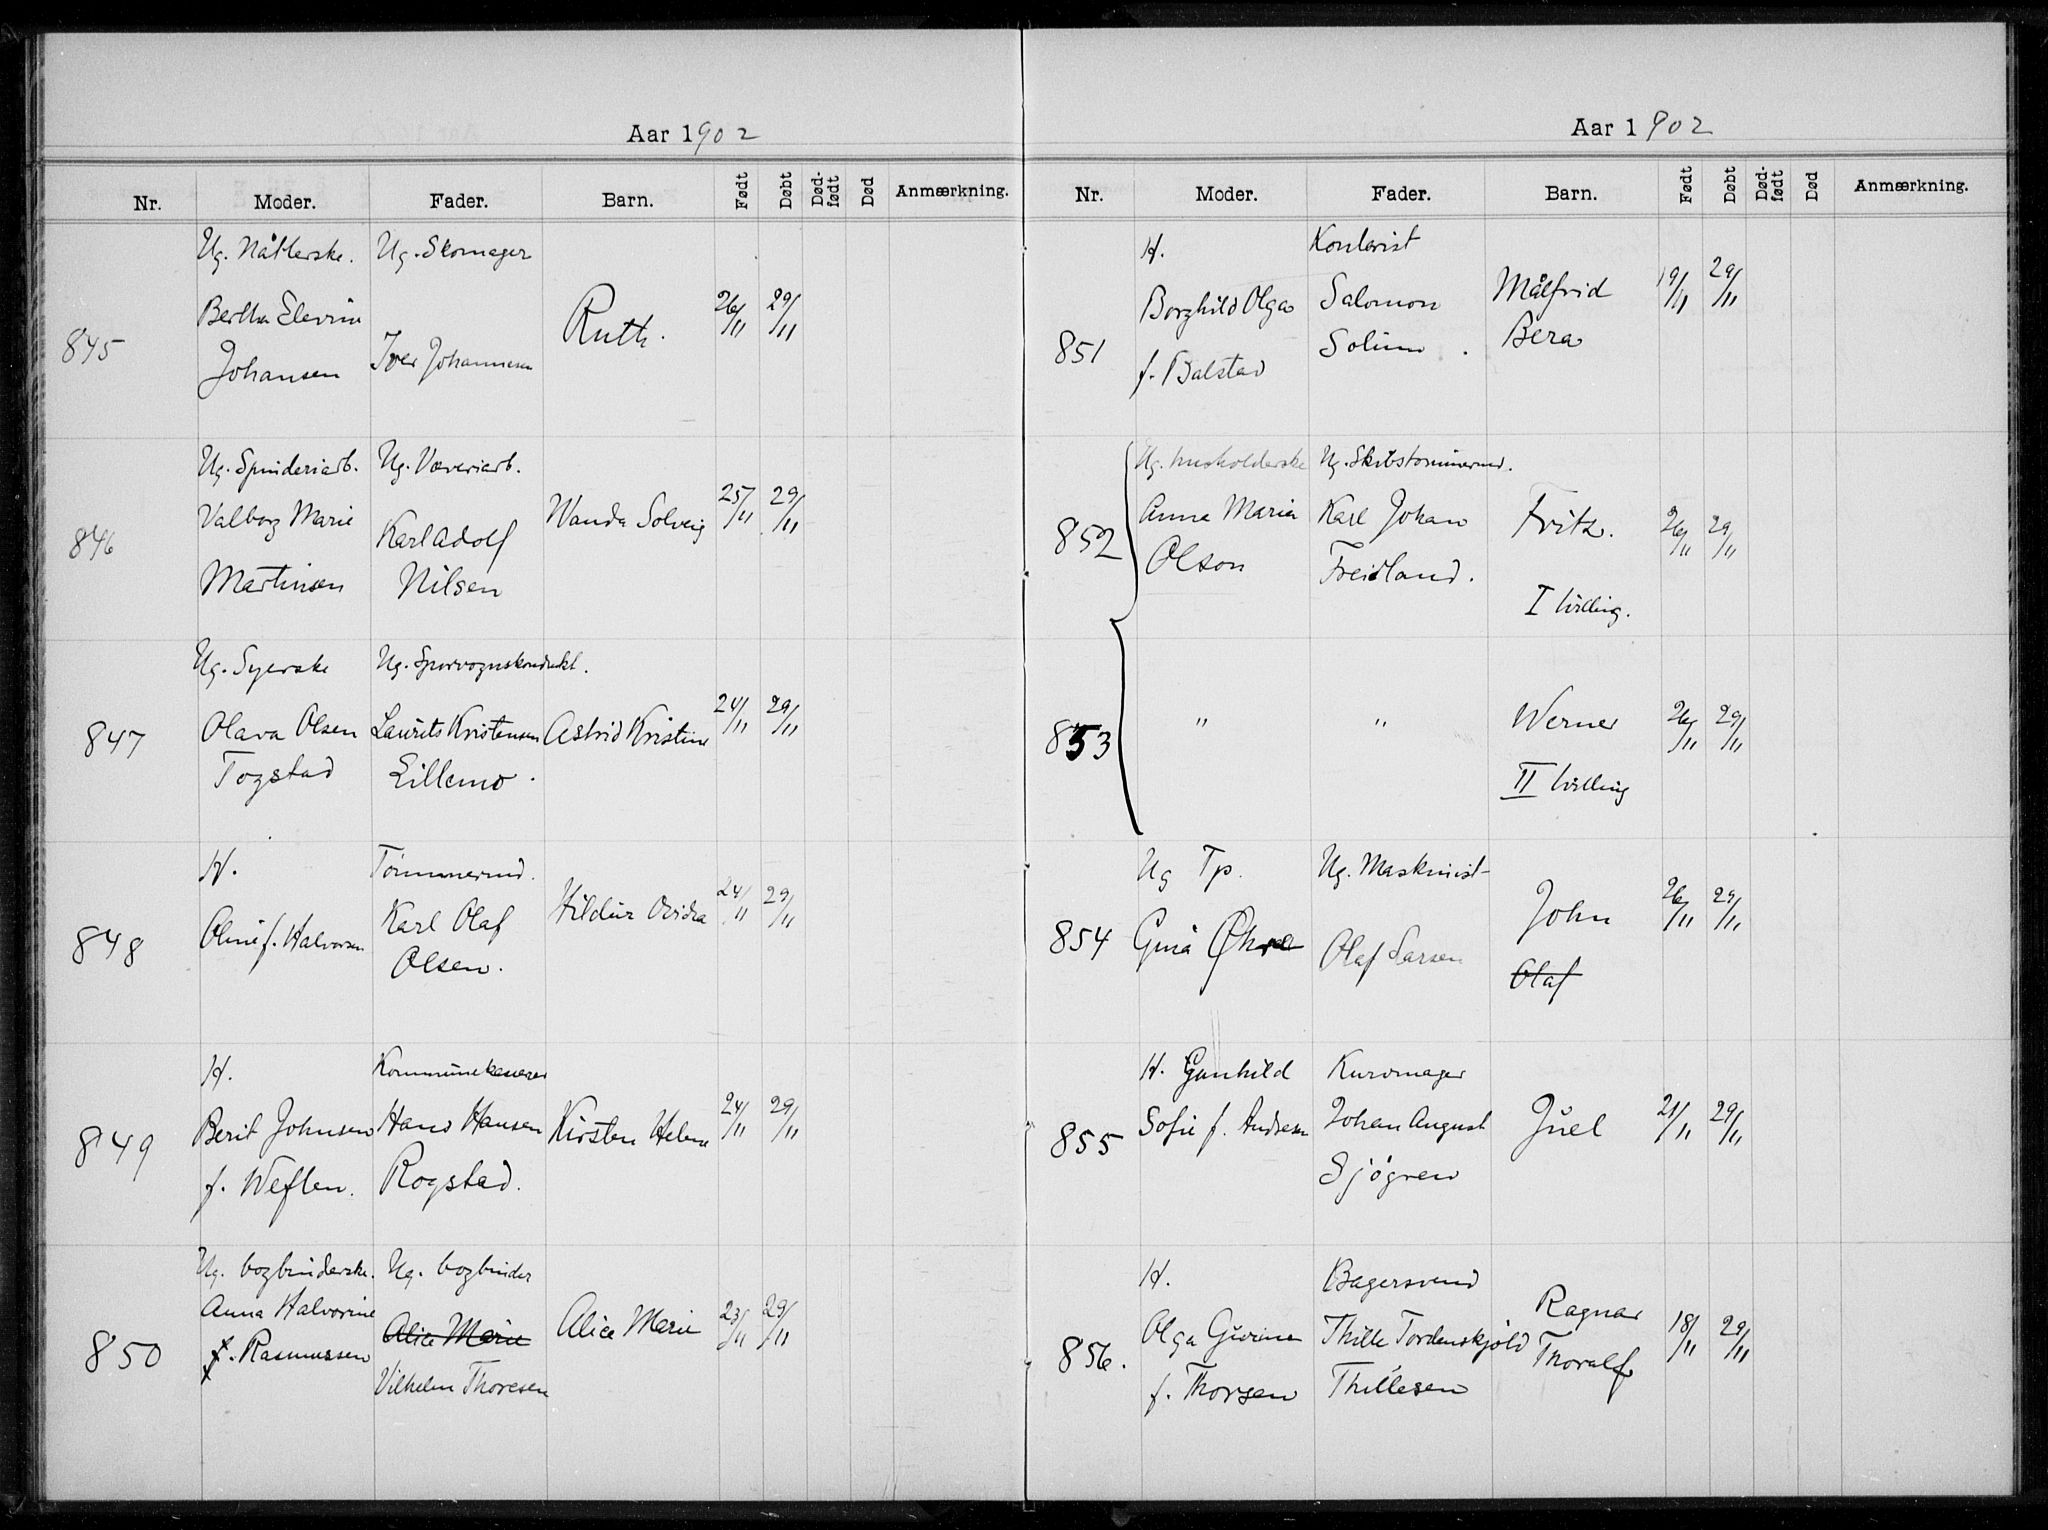 Aar 1902
Nr. Moder. Fader. Barn. Født Døbt Død-født Død Anmærkning.
845
Ug. Nåtlerske.
Bertha Elevine
Johansen
Ug. Skomager
Iver Johannesen
Ruth.
26/11 29/11
846
Ug. Spinderiarb.
Valborg Marie
Martinsen
Ug. Væveriarb.
Karl Adolf
Nilsen
Wanda Solveig
25/11 29/11
847
Ug. Syerske
Olava Olsen
Togstad
Ug. Sporvognskondukt.
Laurits Kristensen
Lillemo.
Astrid Kristine
24/11 29/11
848
H.
Oline f. Halvorsen
Tømmermd.
Karl Olaf
Olsen.
Hildur Ovidia
24/11 29/11
849
H.
Berit Johnsen
f. Weflen.
Kommunekasserer
Hans Hansen
Rogstad.
Kirsten Helene
24/11 29/11
850
Ug. bogbinderske.
Anna Halvorine
f. Rasmussen
Ug. bogbinder
Alice Marie
Vilhelm Thoresen
Alice Marie
23/11 29/11
Aar 1902
Nr. Moder. Fader. Barn. Født Døbt Død-født Død Anmærkning.
851
H.
Borghild Olga
f. Balstad
Kontorist
Salomon
Solum.
Målfrid
Bera
19/11 29/11
852
Ug. husholderske
Anna Maria
Olson
Ug. Skibstømmermd.
Karl Johan
Freidland.
Fritz.
I tvilling.
26/11 29/11
853
" "
Werner
II tvilling
26/11 29/11
854
Ug Tp.
Gina
Ug. Maskinist
Olaf Larsen
John
Olaf
26/11 29/11
855
H. Gunhild
Sofie f. Andresen
Kurvmager
Johan August
Sjögren
Juel
21/11 29/11
856.
H.
Olga Gurine
f. Thorsen
Bagersvend
Thille Tordenskjold
Thillesen
Ragnar
Thoralf
18/11 29/11